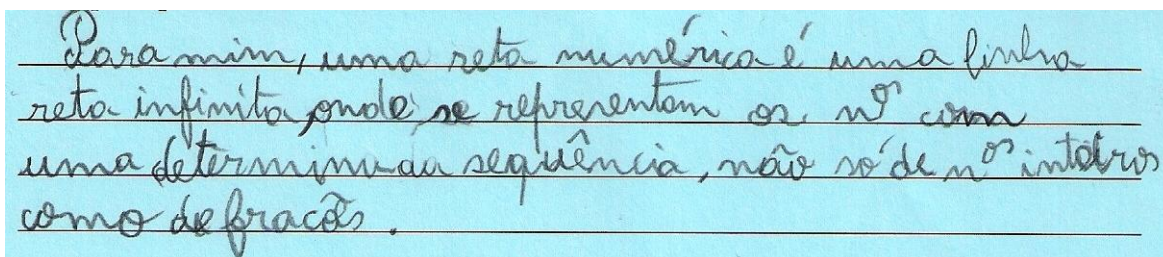 Para mim, uma reta numérica é uma linha
reta infinita, onde se representam os nºs com
uma determinada sequência, não só de nºs inteiros
como de fracões.